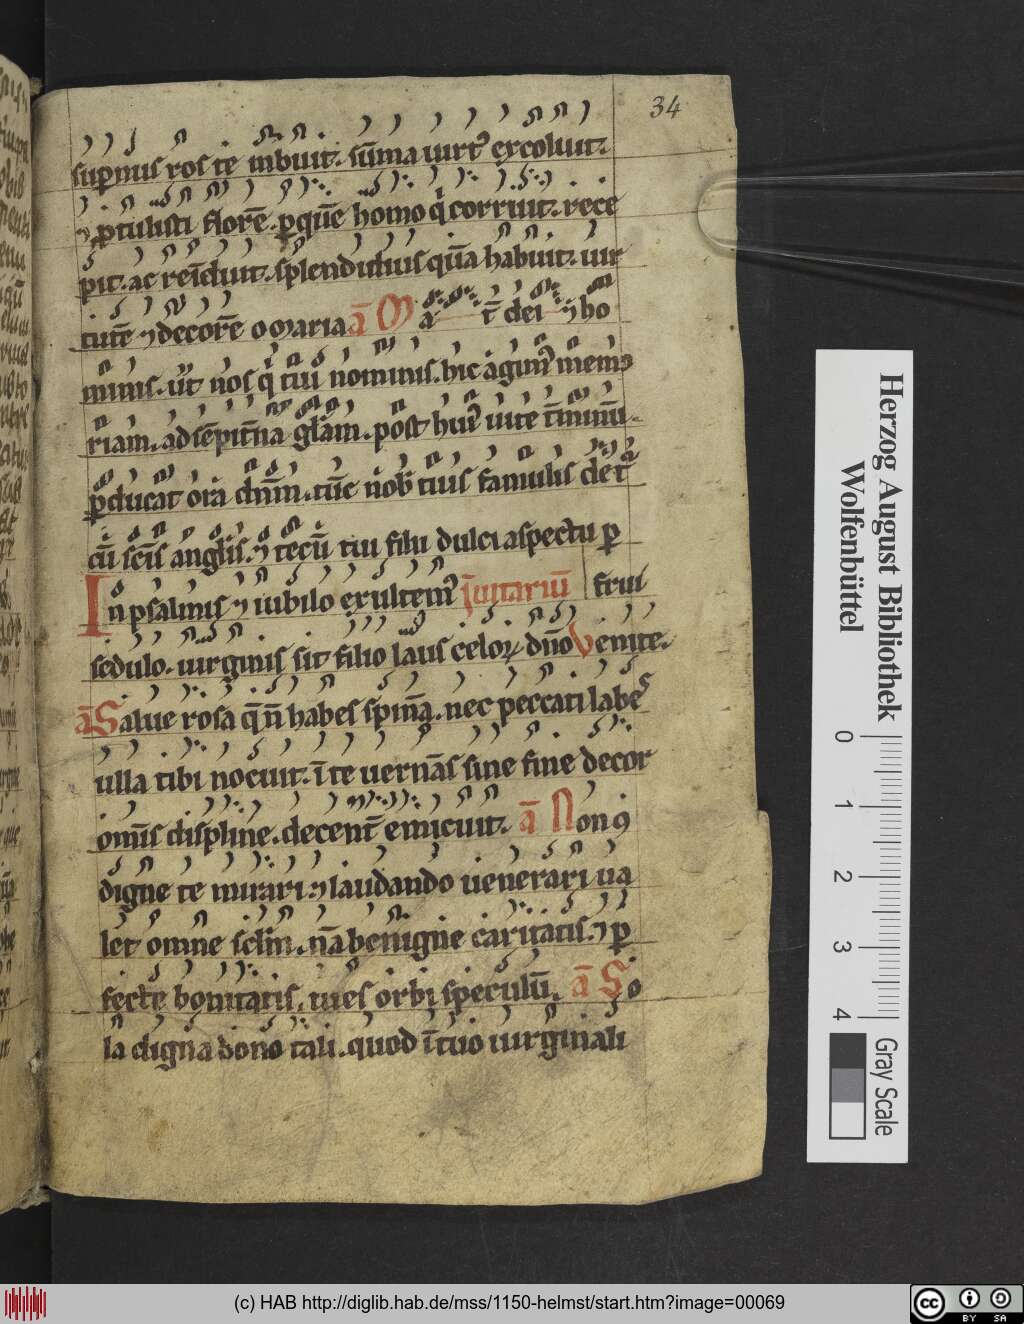 34
sup̄nus ros te imbuit. sūma uirtꝰ excoluit.
⁊ ꝑtulisti florē. ꝑ quē homo q̇ corruit. rece
pit. ac reīduit. splendidius quā habuit. uir
tutē ⁊ decorē o maria ā M a t̄ dei ⁊ ho
minis. ut nos q̇ tui nominis. hic agimꝰ memo
riam. ad sēpit̄na gl̄am. post huiꝰ uite t̄minū.
ꝑducat ora dn̄m. tūc nob̄ tuis famulis det
cū scīs angl̄is. ⁊ tecū tui filii dulci aspectu ꝑ
In psalmis ⁊ iubilo exultemꝰ Inuitariū frui
sedulo. uirginis sit filio laus celoꝝ dn̄o Venite.
ā Salue rosa q̄ n̄ habes spinā. nec peccati labes
ulla tibi nocuit. ī te uernās sine fine decor
omīs displīne. decent̄ emicuit. ā Non ꝯ
digne te mirari ⁊ laudando uenerari ua
let omne sclm̄. nā benigne caritatis. ⁊ ꝑ
fecte bonitatis. tu es orbi speculū. ā So
la digna dono tali. quod ī tuo uirginali
Herzog August Bibliothek
Wolfenbüttel
0 1 2 3 4
Gray Scale
(c) HAB http://diglib.hab.de/mss/1150-helmst/start.htm?image=00069
cc BY SA